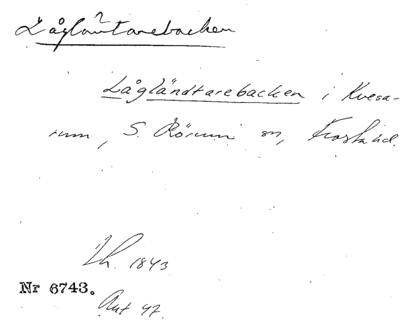 Låglantarebacken
Lågländtarebacken i Kvesa-
rum, S. Rörum sn, Frosta hd.
Lh. 1843
Nr 6743.
Ant 47.